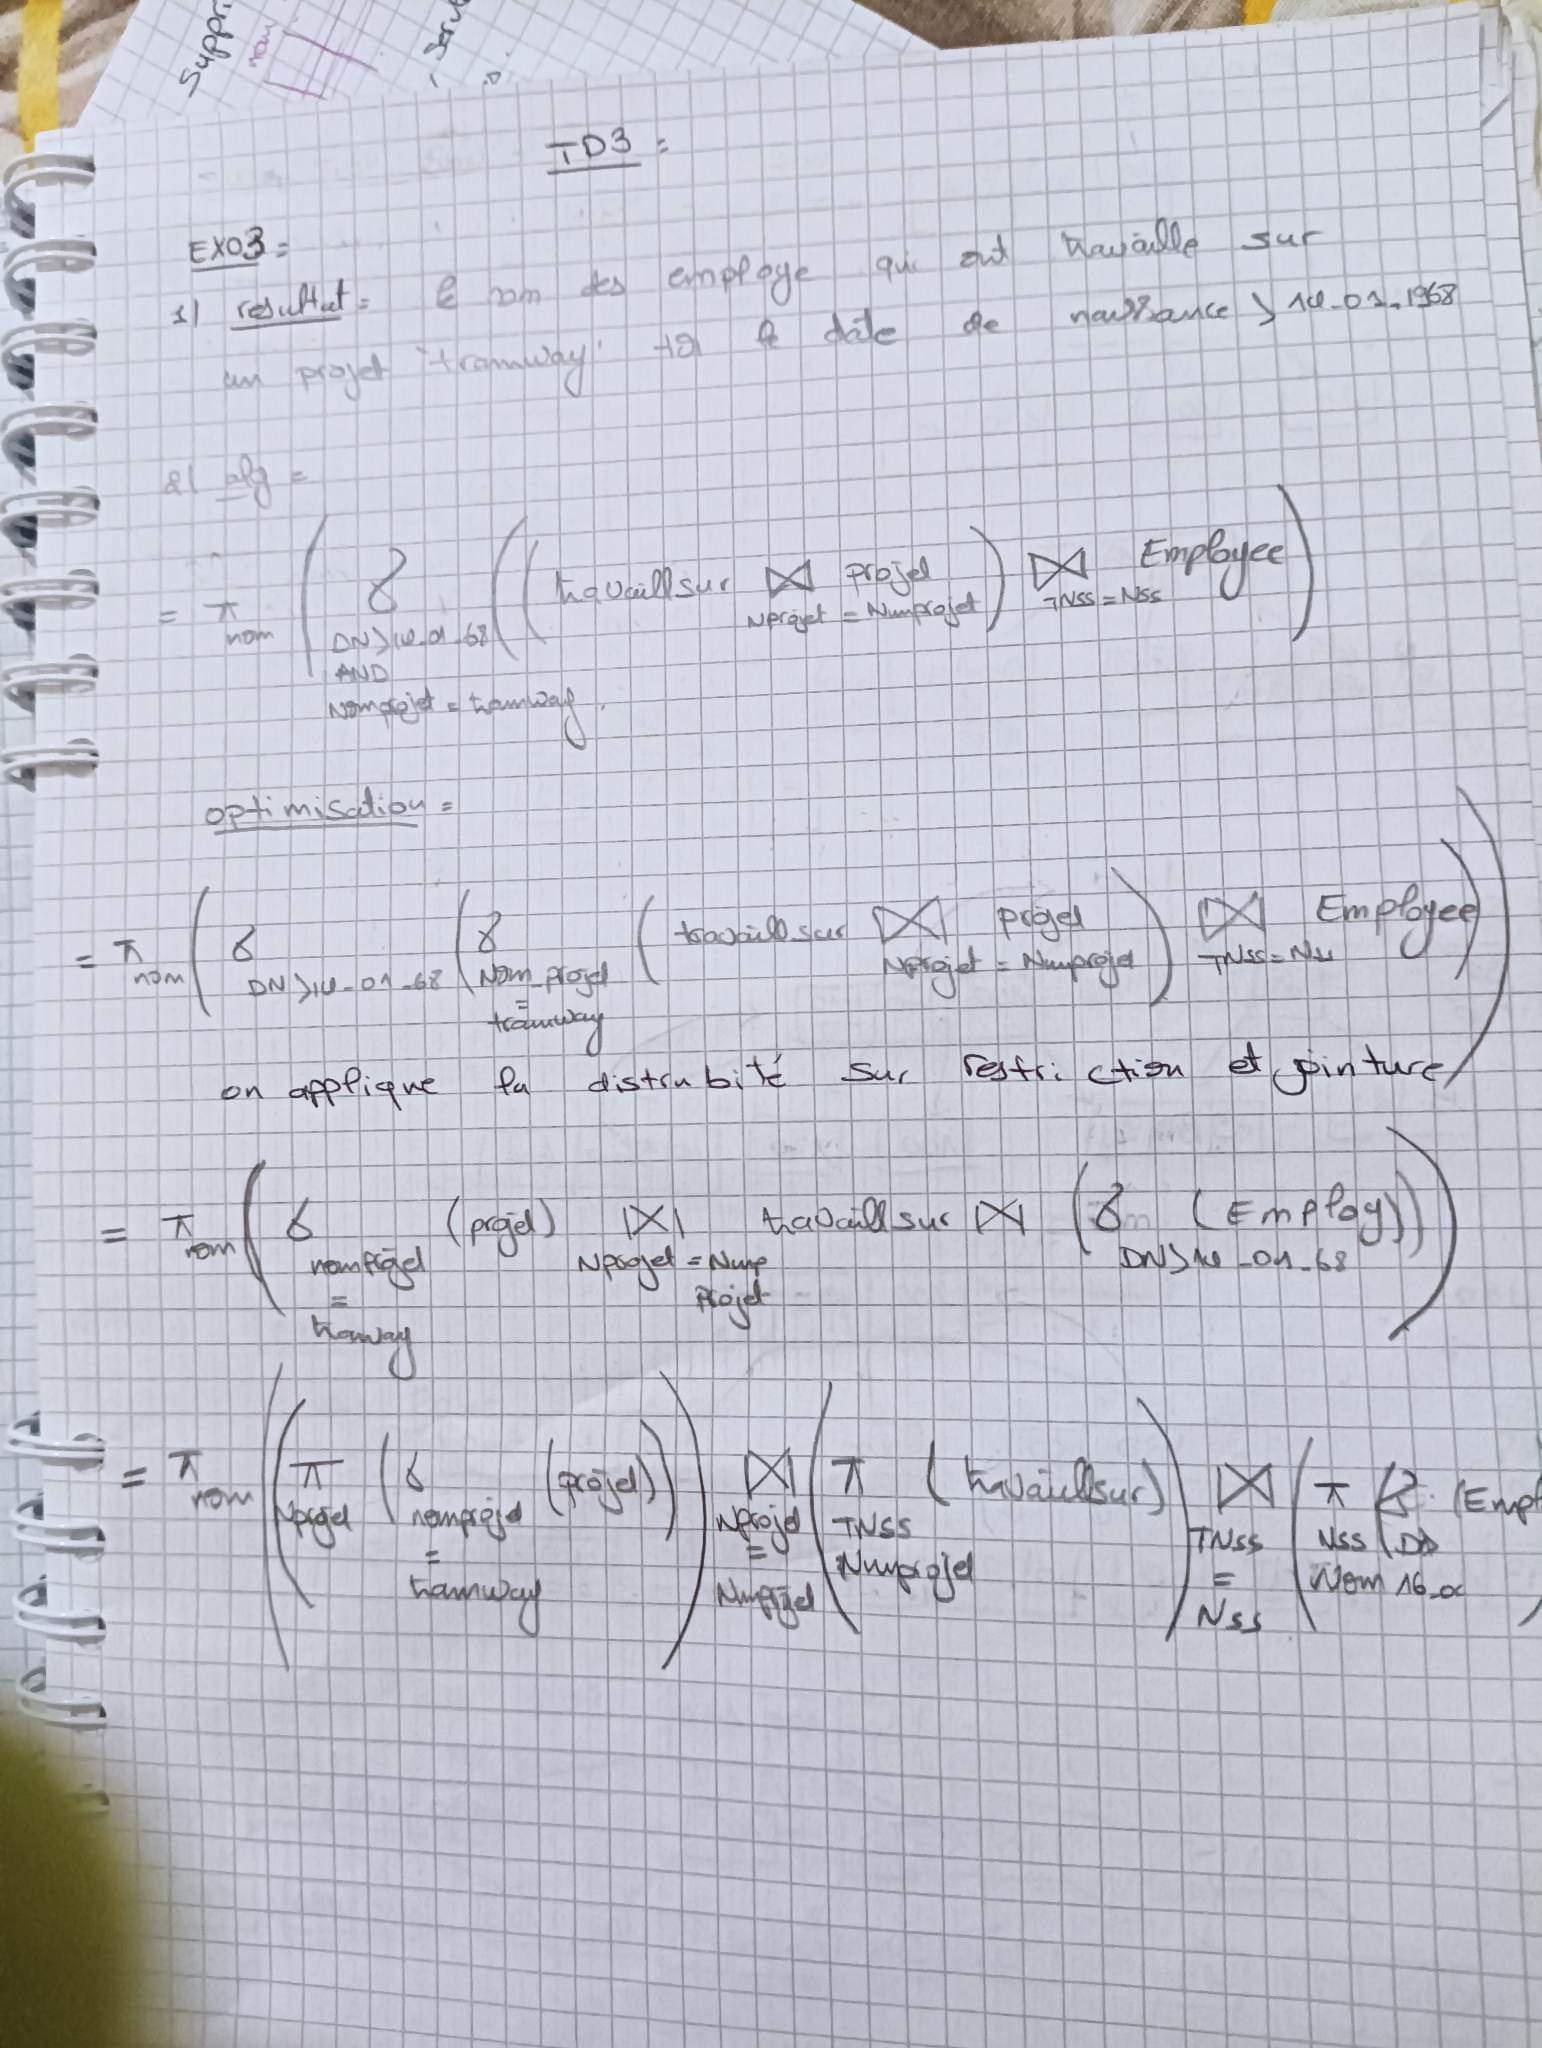 Suppri
nom
TD3 :
EXO3 =
1) resultat = le nom des employe qui ont travaille sur
un projet "tramway" tq le date de naissance > 14-01-1968
2) alg =
= π nom ( σ DN>14-01-68 AND Nomprojet = tramway ( ( travaill sur ⋈ Nprojet = Numprojet projet ) ⋈ TNSS = NSS Employee )
optimisation =
= π nom ( σ DN>14-01-68 ( σ Nom_projet = tramway ( travaill sur ⋈ Nprojet = Numprojet projet ) ⋈ TNSS = Nss Employee ) )
on applique la distrubité sur restriction et jointure
= π nom ( σ nomprojet = tramway (projet) ⋈ Nprojet = Num projet travaill sur ⋈ ( σ DN>14-01-68 (Employ) ) )
= π nom ( ( π Nprojet ( σ nomprojet = tramway (projet) ) ) ⋈ Nprojet = Numprojet ( π TNSS Numprojet (travaill sur) ) ⋈ TNSS = NSS ( π NSS Nom (Empl